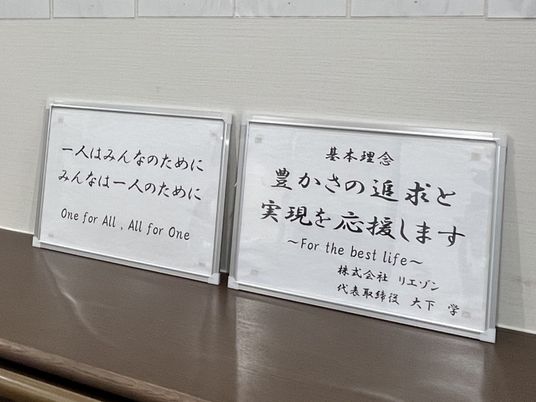 一人はみんなのために
みんなは一人のために
One for All , All for One
基本理念
豊かさの追求と
実現を応援します
～For the best life～
株式会社 リエゾン
代表取締役 大下 学